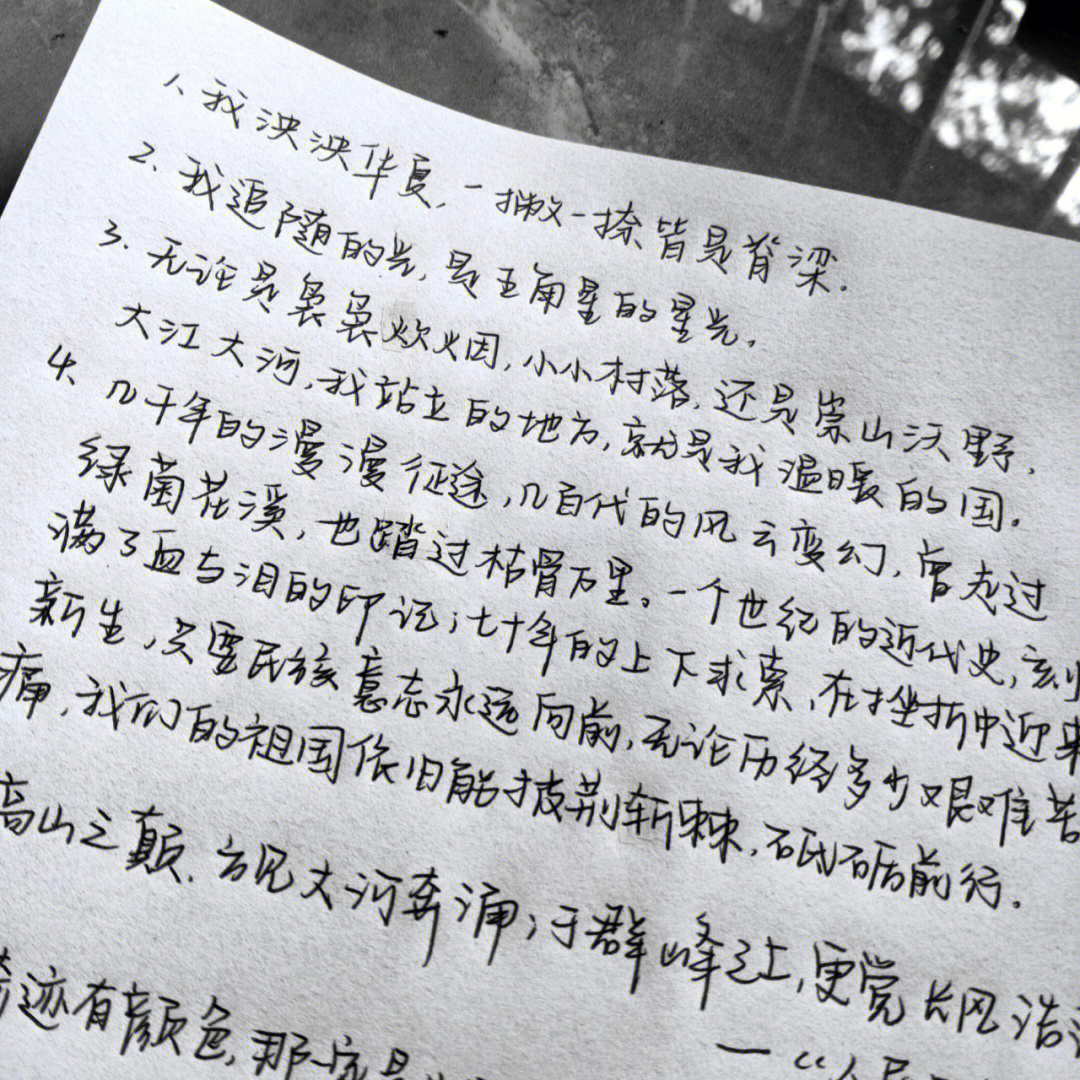 1、我泱泱华夏,一撇一捺皆是脊梁.
2、我追随的光,是五角星的星光.
3、无论是袅袅炊烟,小小村落,还是崇山沃野,
大江大河,我站立的地方,就是我温暖的国.
4、几千年的漫漫征途,几百代的风云变幻,曾走过
绿茵花溪,也踏过枯骨万里。一个世纪的近代史,刻
满了血与泪的印记;七十年的上下求索,在挫折中迎来
新生,只要民族意志永远向前,无论历经多少艰难苦
痛,我们的祖国依旧能披荆斩棘,砥砺前行.
高山之巅,方见大河奔涌;于群峰之上,更觉长风浩
迹有颜色,那一定是
—"人民